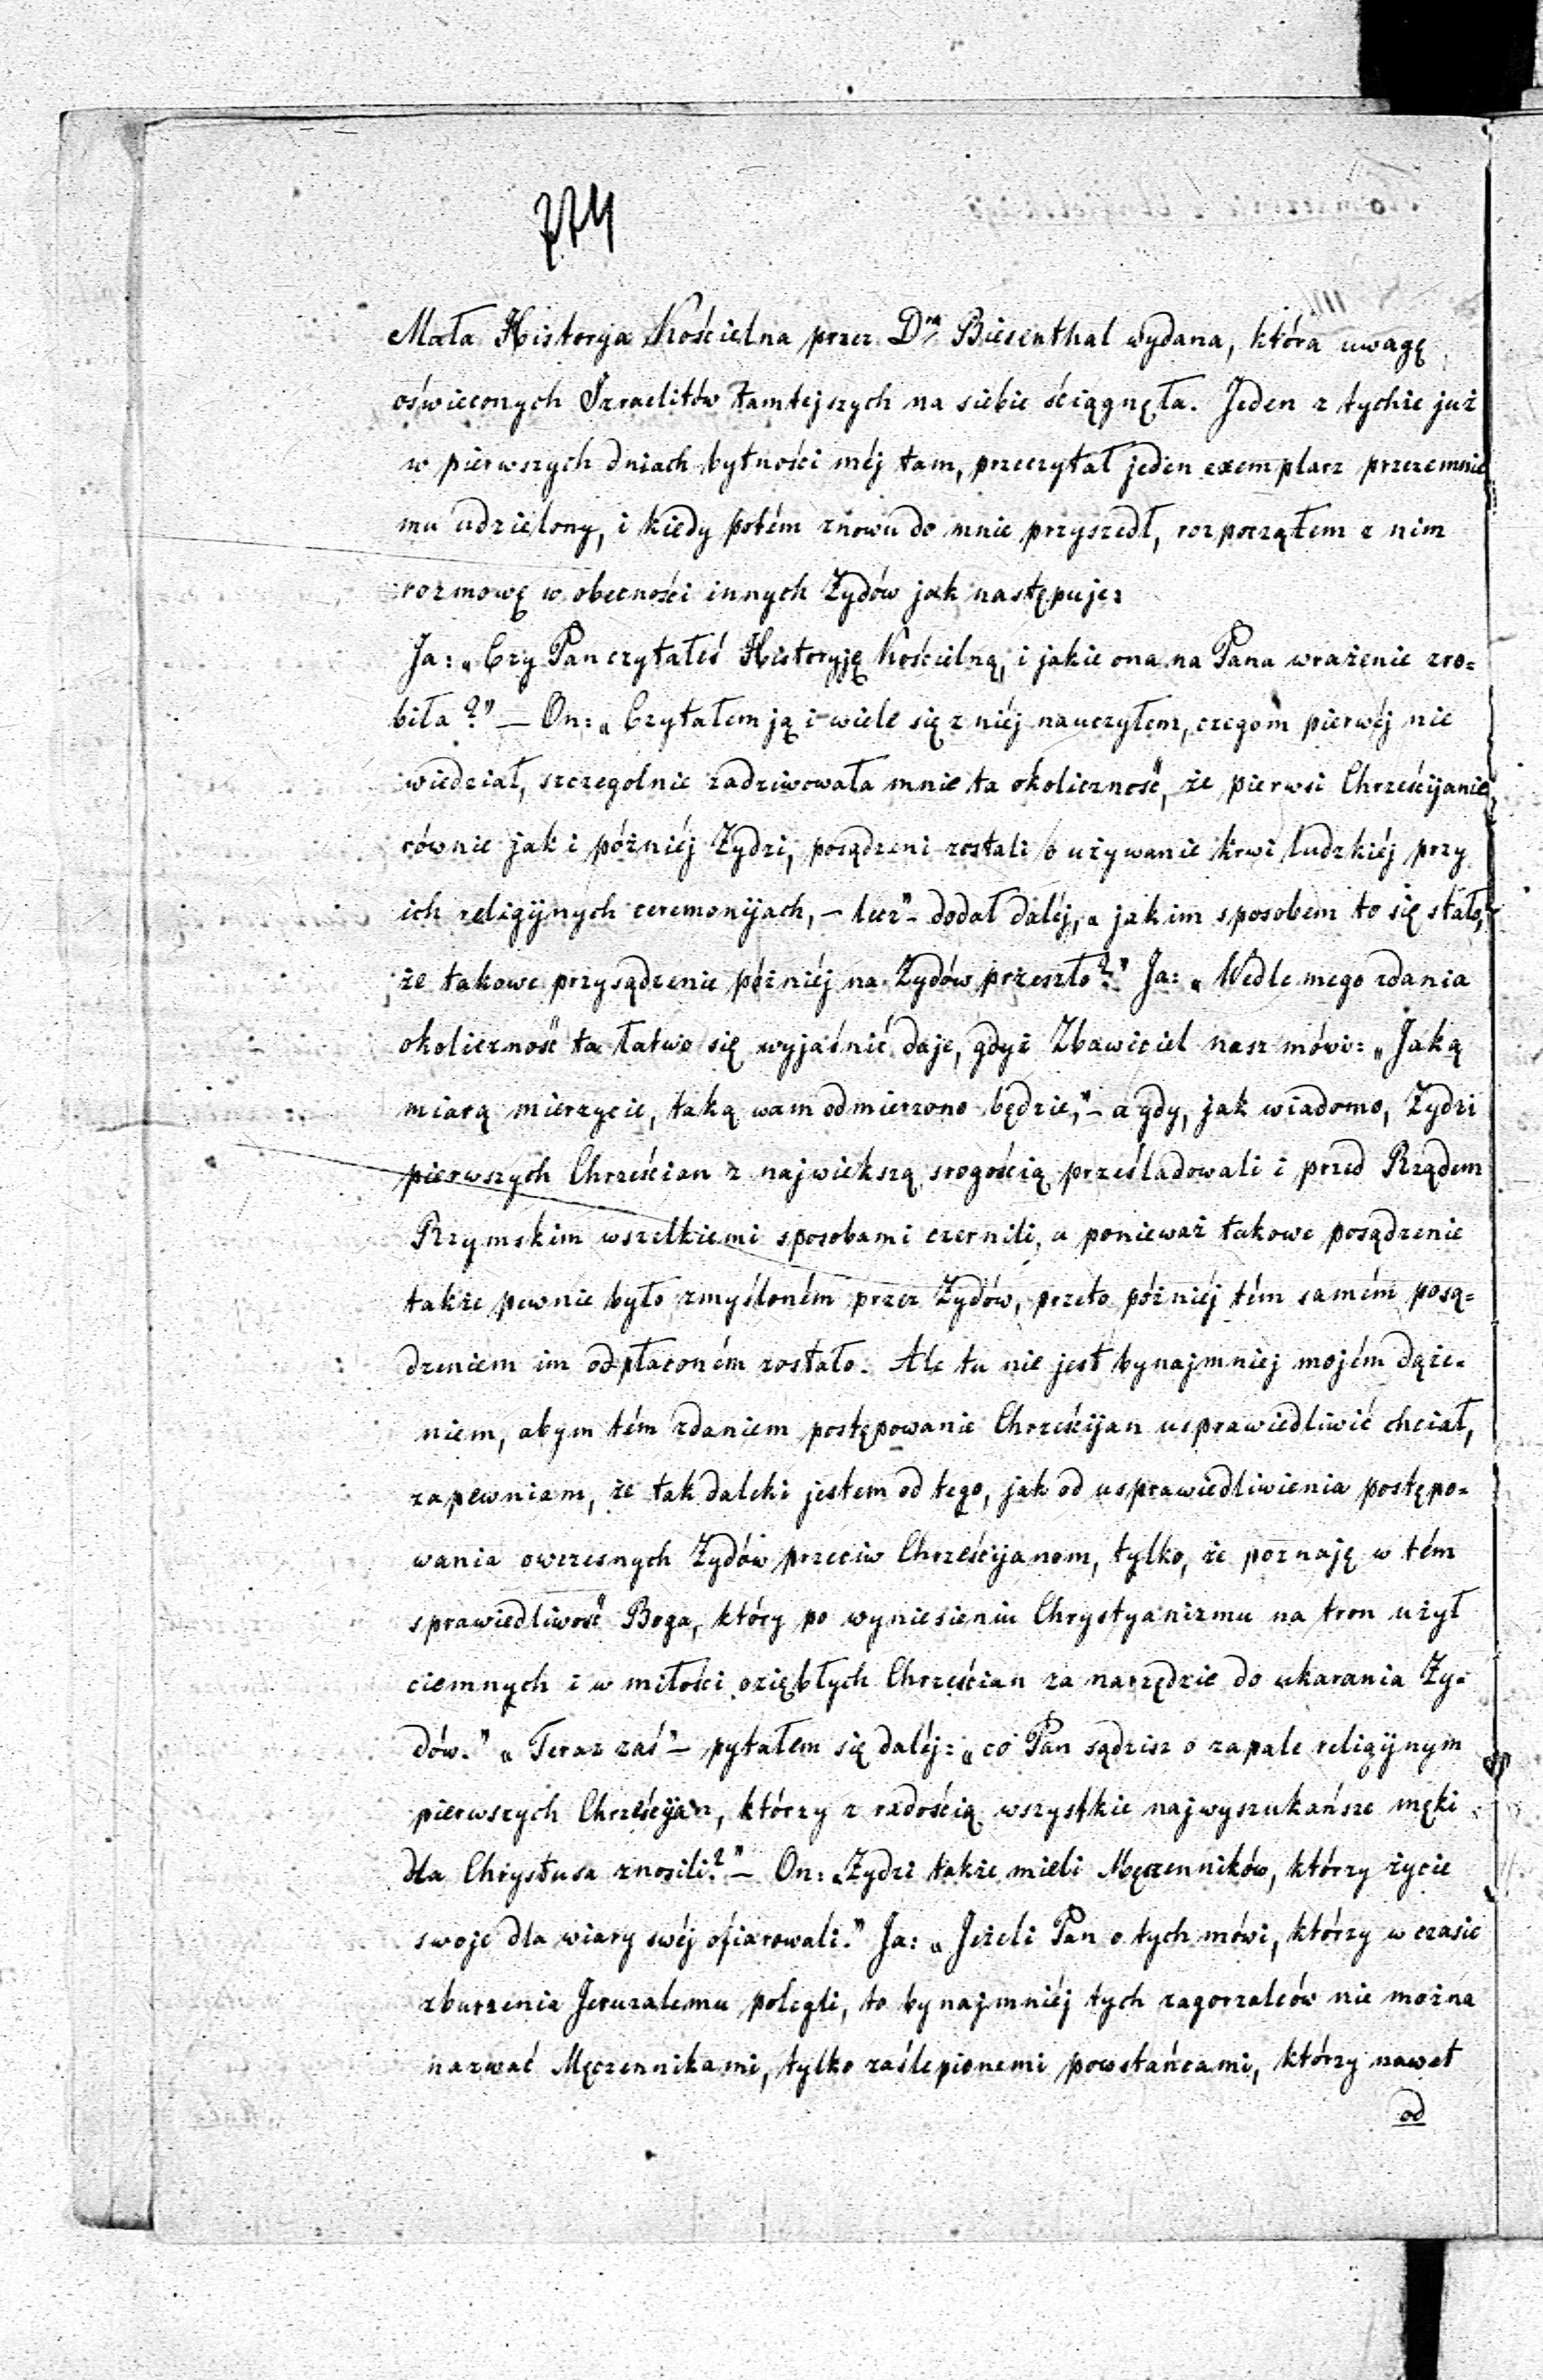 774
Mała Historya Kościelna przez Dra Biesenthal wydana, która uwagę
oświeconych Izraelitów tamtejszych na siebie ściągnęła. Jeden z tychże już
w pierwszych dniach bytności méj tam, przeczytał jeden exemplarz przezemnie
mu udzielony, i kiedy potém znowu do mnie przyszedł, rozpocząłem z nim
rozmowę w obecności innych Żydów jak następuje:
Ja: „Czy Pan czytałeś Historyję Kościelną, i jakie ona na Pana wrażenie zro=
biła?” — On: „Czytałem ją i wiele się z niéj nauczyłem, czegom pierwéj nie
wiedział, szczegolnie zadziwowała mnie ta okoliczność, że pierwsi Chrześcijanie,
równie jak i późniéj Żydzi, posądzeni zostali o używanie krwi ludzkiéj przy
ich religijnych ceremonijach, — lecz” — dodał daléj, „jakim sposobem to się stało,
że takowe przysądzenie późniéj na Żydów przeszło?” Ja: „Wedle mego zdania
okoliczność ta łatwo się wyjaśnić daje, gdyż Zbawiciel nasz mówi: „Jaką
miarą mierzycie, taką wam odmierzono będzie,” — a gdy, jak wiadomo, Żydzi
pierwszych Chrześcian z najwiekszą srogością prześladowali i przed Rządem
Rzymskim wszelkiemi sposobami czernili, a ponieważ takowe posądzenie
także pewnie było zmyśloném przez Żydów, przeto późniéj tém samém posą=
dzeniem im odpłaconém zostało. Ale tu nie jest bynajmniej mojém dąże=
niem, abym tém zdaniem postępowanie Chrześcijan usprawiedliwić chciał,
zapewniam, że tak daleki jestem od tego, jak od usprawiedliwienia postępo=
wania owczesnych Żydów przeciw Chrześcijanom, tylko, że poznaję w tém
sprawiedliwość Boga, który po wyniesieniu Chrystyanizmu na tron użył
ciemnych i w miłości oziębłych Chrześcian za narzędzie do ukarania Ży=
dów.” „Teraz zaś” — pytałem się daléj: „co Pan sądzisz o zapale religijnym
pierwszych Chrześcijan, którzy z radością wszystkie najwyszukańsze męki
dla Chrystusa znosili?” — On: „Żydzi także mieli Męczenników, którzy życie
swoje dla wiary swéj ofiarowali.” Ja: „Jeżeli Pan o tych mówi, którzy w czasie
zburzenia Jeruzalemu polegli, to bynajmniéj tych zagorzalców nie można
nazwać Męczennikami, tylko zaślepionemi powstańcami, którzy nawet
od